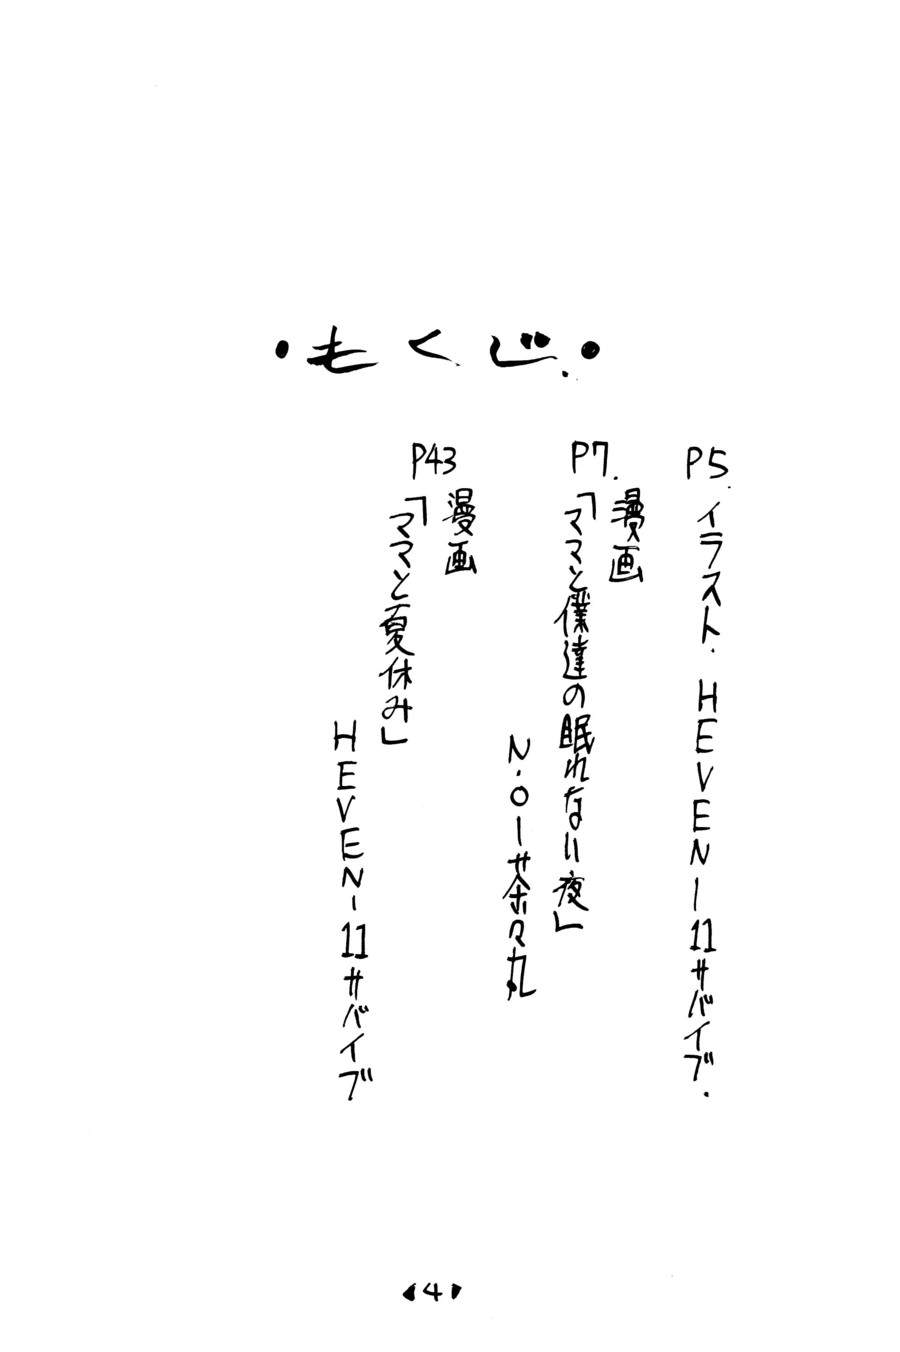 ・もくじ・
P5.
イラスト・HEVEN-11サバイブ.
P7.
漫画
「ママと僕達の眠れない夜」
N.O-茶々丸
P43
漫画
「ママと夏休み」
HEVEN-11サバイブ
4